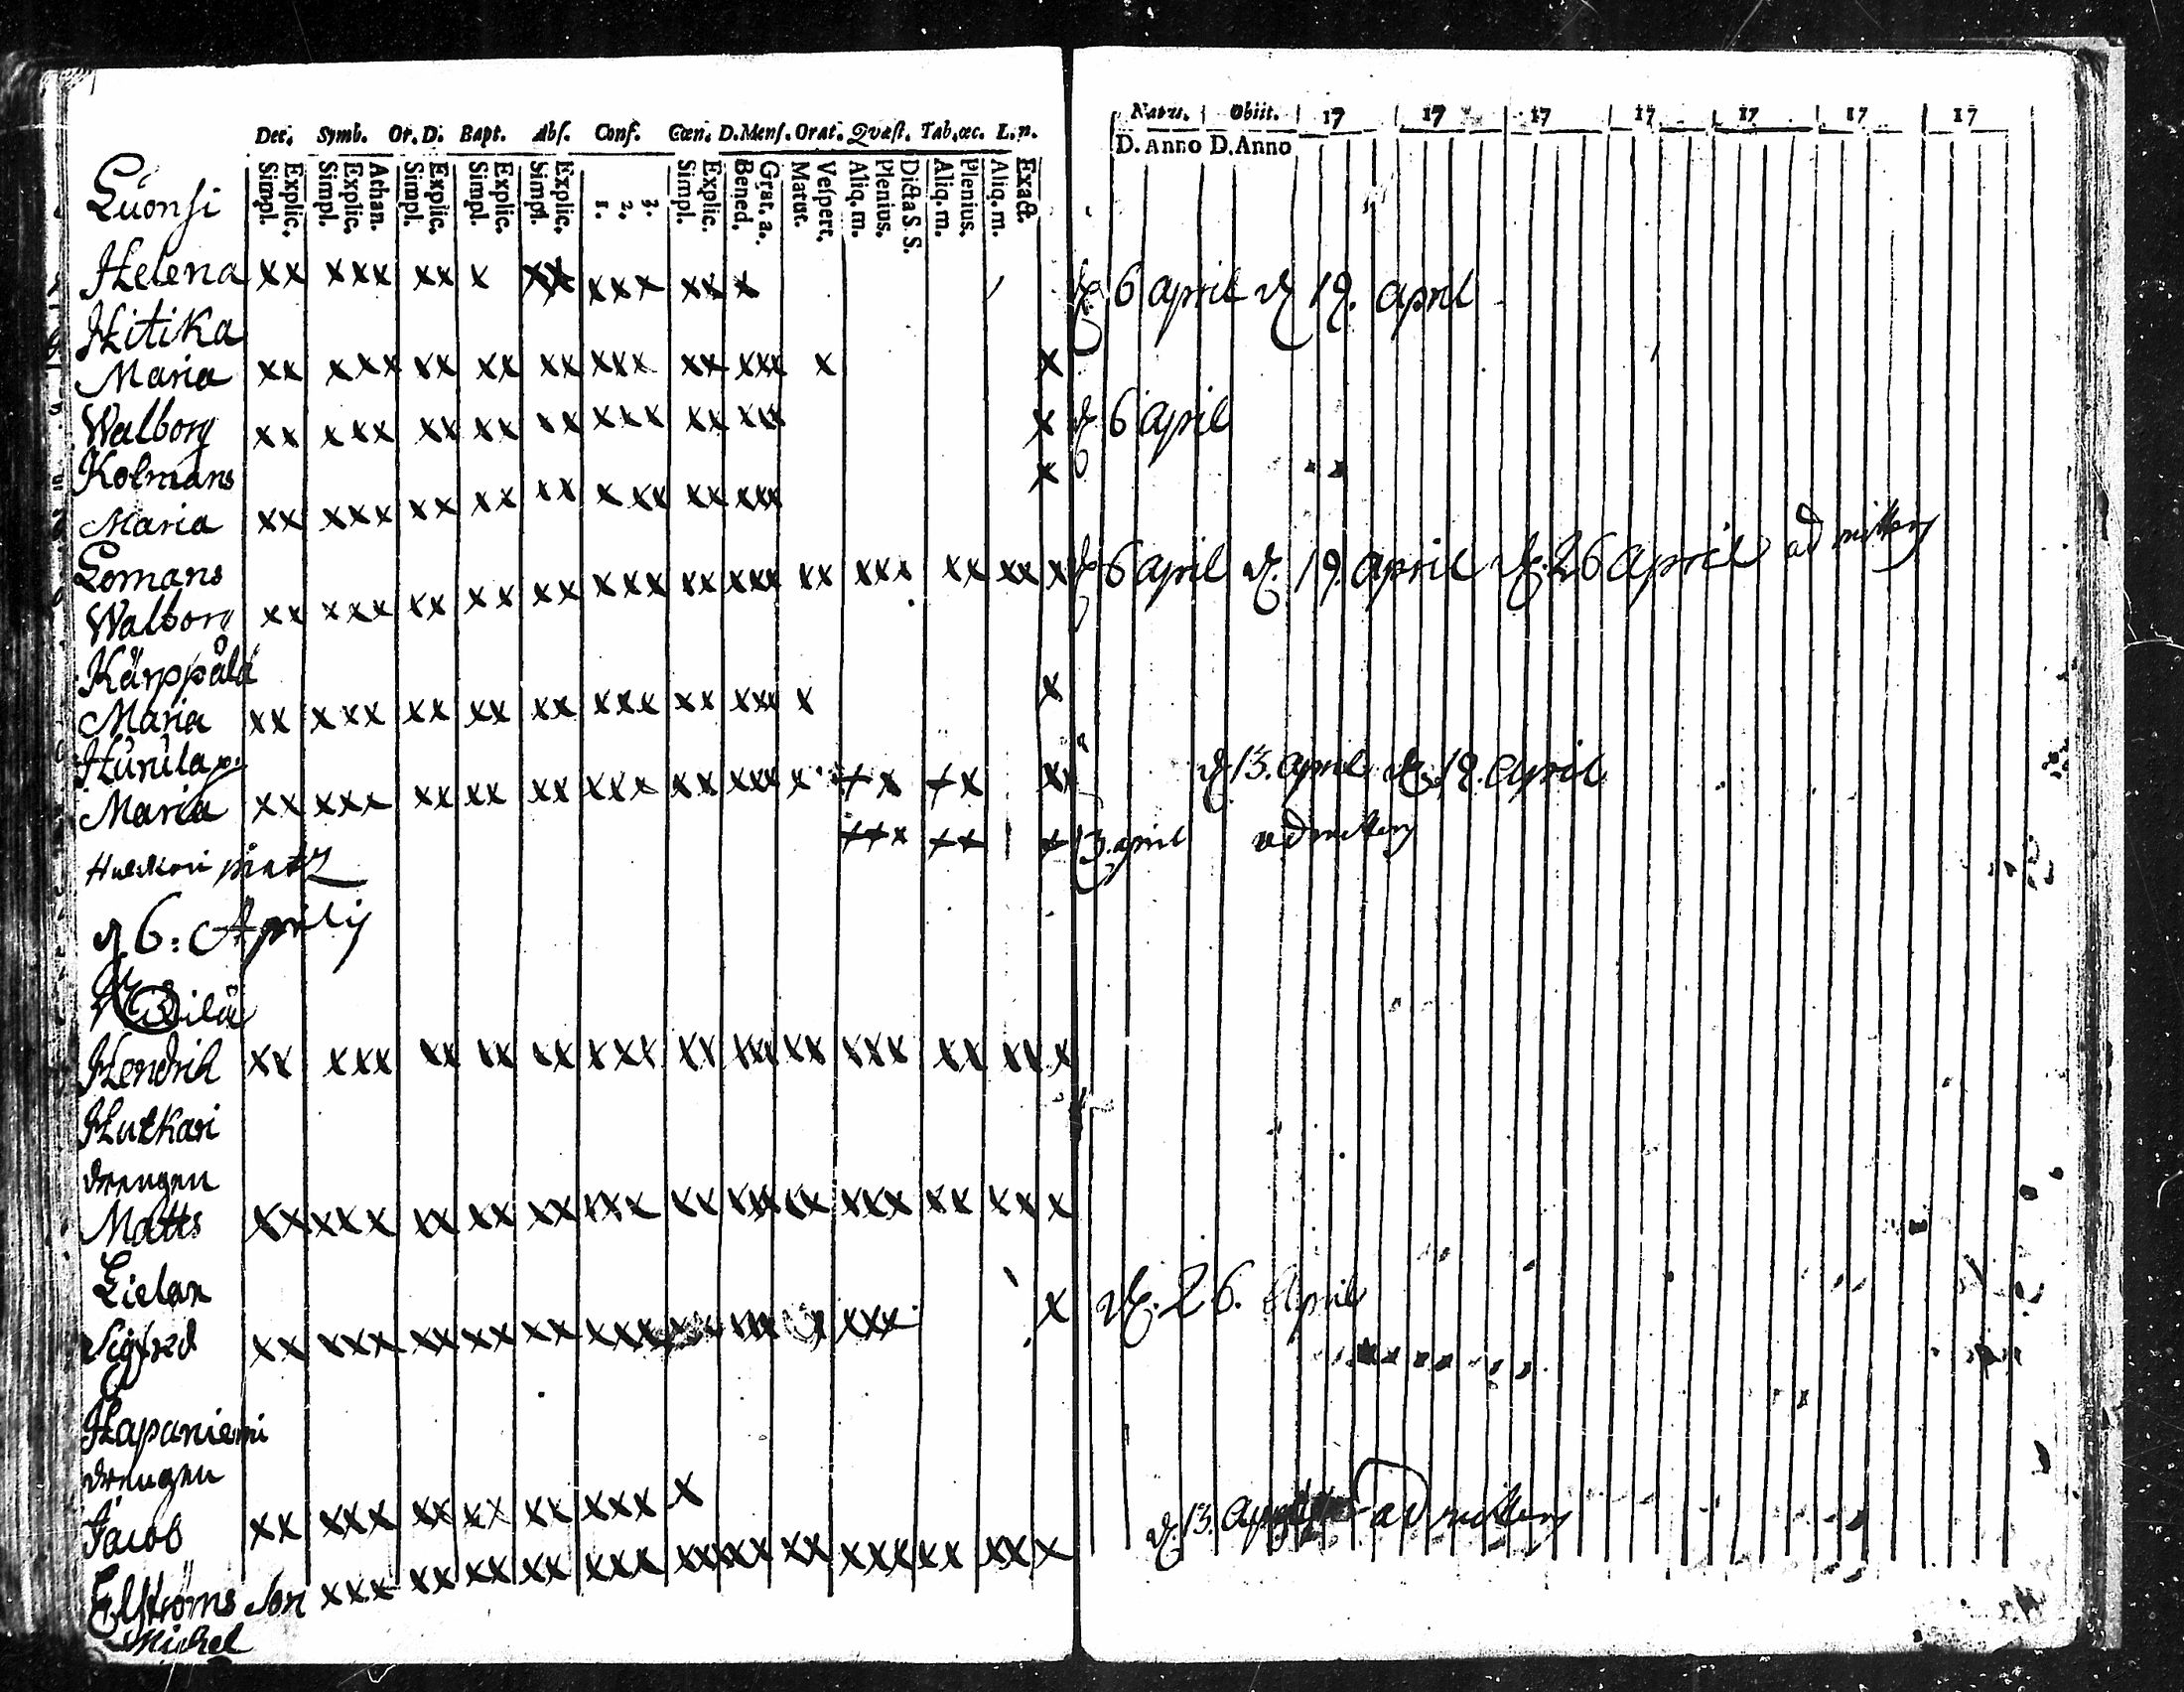 Dec. Symb. Or. D. Bapt. Abs. Conf. Cœn. D. Mens. Orat. Qvæst. Tab. œc. L. n.
Simpl. Explic. Simpl. Explic. Athan. Simpl. Explic. Simpl. Explic. Simpl. Explic. 1. 2. 3. Simpl. Explic. Bened. Grat. a. Matut. Vespert. Aliq. m. Plenius. Dicta S. S. Aliq. m. Plenius. Aliq. m. Exact.
Natus. Obiit. 17 17 17 17 17 17 17
D. Anno D. Anno
Luonsi
Helena xx xxx xx x xx xxx xx x 6 april 19. april
Hitika
Maria xx xxx xx xx xx xxx xx xxx x x
Walborg xx xxx xx xx xx xxx xx xxx x 6 april
Kolmans x
Maria xx xxx xx xx xx xxx xx xxx
Lomans
Walborg xx xxx xx xx xx xxx xx xxx xx xxx xx xx x 6 april 19. april 26 april
Kärppälä
Maria xx xxx xx xx xx xxx xx xxx x x
Hurula p.
Maria xx xxx xx xx xx xxx xx xxx x xx xx xx 13. april 19. april
xxx xx x 13. april
6: Aprilij
Hendrik xx xxx xx xx xx xxx xx xxx xx xxx xx xx x
Hutkari
drengen
Matts xx xxx xx xx xx xxx xx xxx xx xxx xx xx x
Lielax
Sigfred xx xxx xx xx xx xxx xx xxx xxx x 26. April
Hapaniemi
drengen
Jacob xx xxx xx xx xx xxx x 13.
Elströms Son xxx xx xx xx xxx xx xxx xx xxx xx xx x
Michel